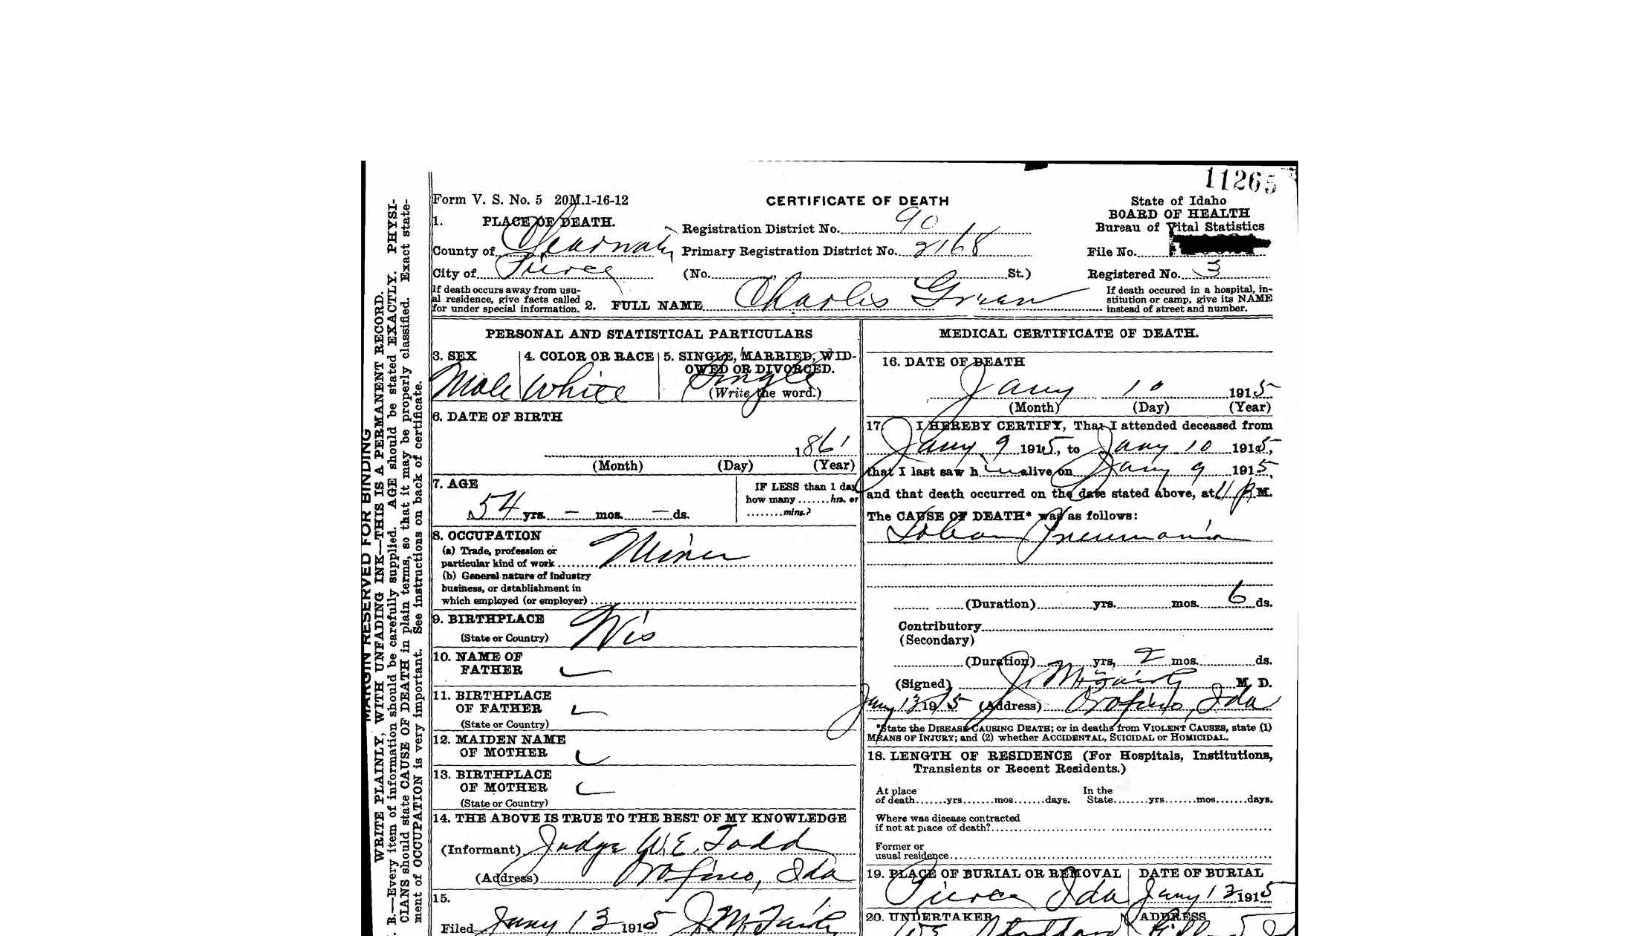 11265
Form V. S. No. 5 20M.1-16-12
CERTIFICATE OF DEATH
State of Idaho
BOARD OF HEALTH
Bureau of Vital Statistics
File No.
Registered No. 3
1. PLACE OF DEATH.
County of Clearwater
City of Pierce
Registration District No. 90
Primary Registration District No. 2168
(No. St.)
If death occurs away from usu-
al residence, give facts called
for under special information.
2. FULL NAME Charles Green
If death occured in a hospital, in-
stitution or camp, give its NAME
instead of street and number.
PERSONAL AND STATISTICAL PARTICULARS
3. SEX
Male
4. COLOR OR RACE
White
5. SINGLE, MARRIED, WID-
OWED OR DIVORCED.
Single
(Write the word.)
6. DATE OF BIRTH
1861
(Month) (Day) (Year)
7. AGE
54 yrs. — mos. — ds.
IF LESS than 1 day
how many ....... hrs. or
........ mins.?
8. OCCUPATION
(a) Trade, profession or
particular kind of work Miner
(b) General nature of Industry
business, or establishment in
which employed (or employer)
9. BIRTHPLACE
(State or Country) Wis
10. NAME OF
FATHER
11. BIRTHPLACE
OF FATHER
(State or Country)
12. MAIDEN NAME
OF MOTHER
13. BIRTHPLACE
OF MOTHER
(State or Country)
14. THE ABOVE IS TRUE TO THE BEST OF MY KNOWLEDGE
(Informant) Judge W.E. Todd
(Address) Orofino, Ida
15.
Filed Jany 13 1915
MEDICAL CERTIFICATE OF DEATH.
16. DATE OF DEATH
Jany 10 1915
(Month) (Day) (Year)
17. I HEREBY CERTIFY, That I attended deceased from
Jany 9 1915, to Jany 10 1915,
that I last saw him alive on Jany 9 1915
and that death occurred on the date stated above, at P.M.
The CAUSE OF DEATH* was as follows:
Lobar Pneumonia
(Duration) yrs. mos. 6 ds.
Contributory
(Secondary)
(Duration) yrs, 2 mos. ds.
(Signed) M. D.
Jany 13 1915 (Address) Orofino, Ida
*State the DISEASE CAUSING DEATH; or in deaths from VIOLENT CAUSES, state (1)
MEANS OF INJURY; and (2) whether ACCIDENTAL, SUICIDAL or HOMICIDAL.
18. LENGTH OF RESIDENCE (For Hospitals, Institutions,
Transients or Recent Residents.)
At place
of death.......yrs.......mos.......days.
In the
State.......yrs.......mos.......days.
Where was disease contracted
if not at place of death?
Former or
usual residence
19. PLACE OF BURIAL OR REMOVAL
Pierce Ida
DATE OF BURIAL
Jany 1915
20. UNDERTAKER
ADDRESS
MARGIN RESERVED FOR BINDING
WRITE PLAINLY, WITH UNFADING INK—THIS IS A PERMANENT RECORD.
B.—Every item of information should be carefully supplied. AGE should be stated EXACTLY. PHYSI-
CIANS should state CAUSE OF DEATH in plain terms, so that it may be properly classified. Exact state-
ment of OCCUPATION is very important. See instructions on back of certificate.